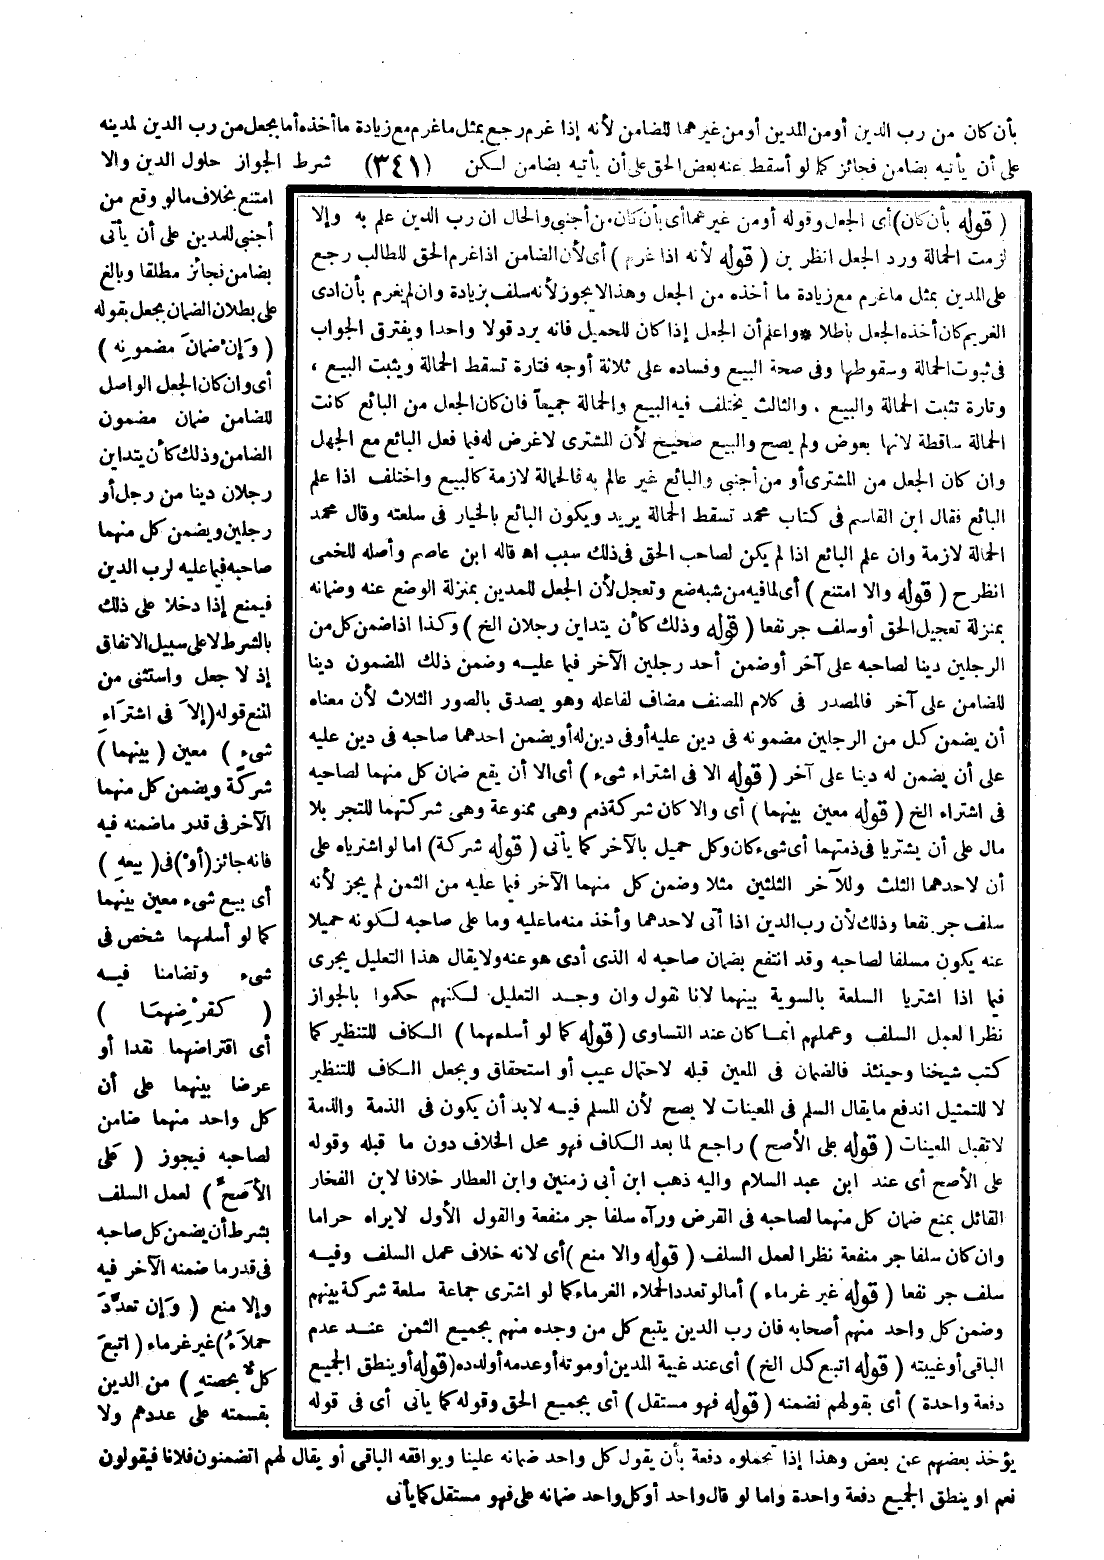 بأن كان من رب الدين أو من المدين أو من غيرهما للضامن لأنه إذا غرم رجع بمثل ما غرم مع زيادة ما أخذه أما بجعل من رب الدين لمدينه
على أن يأتيه بضامن فجائز كما لو أسقط عنه بعض الحق على أن يأتيه بضامن لكن (٣٤١) شرط الجواز حلول الدين والا
امتنع بخلاف ما لو وقع من
أجنبي للمدين على أن يأتى
بضامن نجائز مطلقا وبالغ
على بطلان الضمان بجعل بقوله
( وَإِنْ ضَمَانَ مَضْمُونِهِ )
أى وان كان الجعل الواصل
للضامن ضمان مضمون
الضامن وذلك كأن يتداين
رجلان دينا من رجل أو
رجلين ويضمن كل منهما
صاحبه فيما عليه لرب الدين
فيمنع إذا دخلا على ذلك
بالشرط لا على سبيل الاتفاق
إذ لا جعل واستثنى من
المنع قوله (إلاَّ فى اشتراءِ
شىءٍ ) معين ( بينهما )
شركةً ويضمن كل منهما
الآخر فى قدر ما ضمنه فيه
فانه جائز (أوْ) فى ( بيعهِ )
أى بيع شىء معين بينهما
كما لو أسلمهما شخص فى
شىء وتضامنا فيه
( كقرْضِهِمَا )
أى اقتراضهما نقدا أو
عرضا بينهما على أن
كل واحد منهما ضامن
لصاحبه فيجوز ( عَلَى
الأصَحِّ ) لعمل السلف
بشرط أن يضمن كل صاحبه
فى قدر ما ضمنه الآخر فيه
وإلا منع ( وَإن تعدَّدَ
حملاءُ) غير غرماء ( اتبعَ
كلٌّ بحصتهِ ) من الدين
بقسمته على عددهم ولا
( قوله بأن كان) أى الجعل وقوله أو من غيرهما أى بأن كان من أجنبي والحال ان رب الدين علم به وإلا
لزمت الحمالة ورد الجعل انظر بن ( قوله لأنه اذا غرم ) أى لأن الضامن اذا غرم الحق للطالب رجع
على المدين بمثل ما غرم مع زيادة ما أخذه من الجعل وهذا لا يجوز لأنه سلف بزيادة وان لم يغرم بأن ادى
الغريم كان أخذه الجعل باطلا * واعلم أن الجعل إذا كان للحميل فانه يرد قولا واحدا ويفترق الجواب
فى ثبوت الحمالة وسقوطها وفى صحة البيع وفساده على ثلاثة أوجه فتارة تسقط الحمالة ويثبت البيع ،
وتارة تثبت الحمالة والبيع ، والثالث يختلف فيه البيع والحمالة جميعاً فان كان الجعل من البائع كانت
الحمالة ساقطة لانها بعوض ولم يصح والبيع صحيح لأن المشترى لا غرض له فيما فعل البائع مع الجهل
وان كان الجعل من المشترى أو من أجنبي والبائع غير عالم به فالحمالة لازمة كالبيع واختلف اذا علم
البائع فقال ابن القاسم فى كتاب محمد تسقط الحمالة يريد ويكون البائع بالخيار فى سلعته وقال محمد
الحمالة لازمة وان علم البائع اذا لم يكن لصاحب الحق فى ذلك سبب اه قاله ابن عاصم وأصله للخمى
انظر ح ( قوله والا امتنع ) أى لما فيه من شبه ضع وتعجل لأن الجعل للمدين بمنزلة الوضع عنه وضمانه
بمنزلة تعجيل الحق أو سلف جر نفعا ( قوله وذلك كأن يتداين رجلان الخ ) وكذا اذا ضمن كل من
الرجلين دينا لصاحبه على آخر أو ضمن أحد رجلين الآخر فيما عليه وضمن ذلك المضمون دينا
للضامن على آخر فالمصدر فى كلام المصنف مضاف لفاعله وهو يصدق بالصور الثلاث لأن معناه
أن يضمن كل من الرجلين مضمونه فى دين عليه أو فى دين له أو يضمن احدهما صاحبه فى دين عليه
على أن يضمن له دينا على آخر ( قوله الا فى اشتراء شىء ) أى الا أن يقع ضمان كل منهما لصاحبه
فى اشتراء الخ ( قوله معين بينهما ) أى والا كان شركة ذمم وهى ممنوعة وهى شركتهما للتجر بلا
مال على أن يشتريا فى ذمتهما أى شىء كان وكل حميل بالآخر كما يأتى ( قوله شركة) اما لو اشترياه على
أن لاحدهما الثلث وللآخر الثلثين مثلا وضمن كل منهما الآخر فيما عليه من الثمن لم يجز لأنه
سلف جر نفعا وذلك لأن رب الدين اذا أتى لاحدهما وأخذ منه ما عليه وما على صاحبه لكونه حميلا
عنه يكون مسلفا لصاحبه وقد انتفع بضمان صاحبه له الذى أدى هو عنه ولا يقال هذا التعليل يجرى
فيما اذا اشتريا السلعة بالسوية بينهما لانا نقول وان وجد التعليل لكنهم حكموا بالجواز
نظرا لعمل السلف وعملهم انما كان عند التساوى ( قوله كما لو أسلمهما ) الكاف للتنظير كما
كتب شيخنا وحينئذ فالضمان فى المعين قبله لاحتمال عيب أو استحقاق وبجعل الكاف للتنظير
لا للتمثيل اندفع ما يقال السلم فى المعينات لا يصح لأن المسلم فيه لابد أن يكون فى الذمة والذمة
لا تقبل المعينات ( قوله على الأصح ) راجع لما بعد الكاف فهو محل الخلاف دون ما قبله وقوله
على الأصح أى عند ابن عبد السلام واليه ذهب ابن أبى زمنين وابن العطار خلافا لابن الفخار
القائل بمنع ضمان كل منهما لصاحبه فى القرض ورآه سلفا جر منفعة والقول الأول لا يراه حراما
وان كان سلفا جر منفعة نظرا لعمل السلف ( قوله والا منع ) أى لانه خلاف عمل السلف وفيه
سلف جر نفعا ( قوله غير غرماء ) أما لو تعدد الحملاء الغرماء كما لو اشترى جماعة سلعة شركة بينهم
وضمن كل واحد منهم أصحابه فان رب الدين يتبع كل من وجده منهم بجميع الثمن عند عدم
الباقى أو غيبته ( قوله اتبع كل الخ ) أى عند غيبة المدين أو موته أو عدمه أو لدده (قوله أو ينطق الجميع
دفعة واحدة ) أى بقولهم نضمنه ( قوله فهو مستقل ) أى بجميع الحق وقوله كما يأتى أى فى قوله
يؤخذ بعضهم عن بعض وهذا إذا تحملوه دفعة بأن يقول كل واحد ضمانه علينا ويوافقه الباقى أو يقال لهم اتضمنون فلانا فيقولون
نعم او ينطق الجميع دفعة واحدة واما لو قال واحد أو كل واحد ضمانه على فهو مستقل كما يأتى